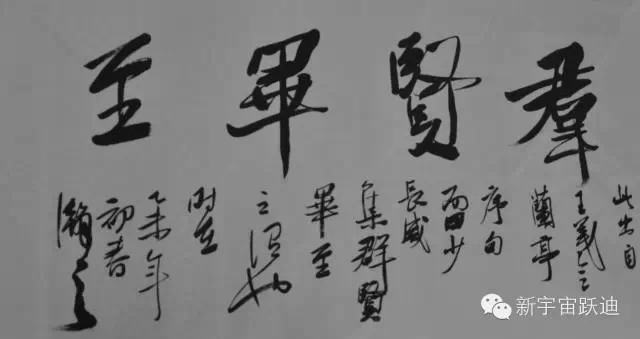 羣賢畢至
此出自
王羲之
蘭亭
序句
少
長咸
集群賢
畢至
之谓也
时在
乙未年
初春
新宇宙跃迪